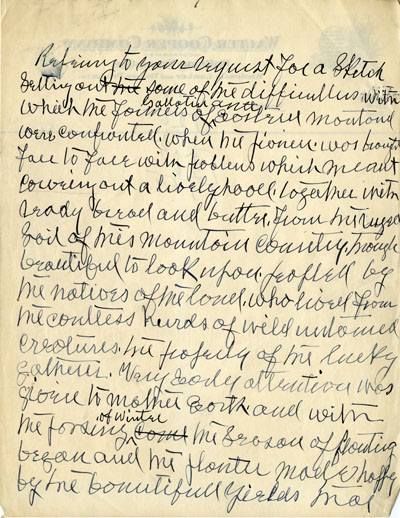 WALTER COOPER COMPANY
Refering to your request for a Sketch
Setting out the some of the difficulties with
which the farmers of Gallatin and Eastern Montana
were confronted. when the pioneer was brought
face to face with problems which meant
a livelyhood. together with
ready bread and butter, from the rugged
soil of this mountain country, though
beautiful to look upon. peopled by
the natives of the land. who lived from
the countless hurds of wild untamed
creatures. the property of the lucky
gatherer. Very early attention was
given to mother Earth and with
the passing of winter came the season of planting
began and the planter made happy
by the bountifull yields that